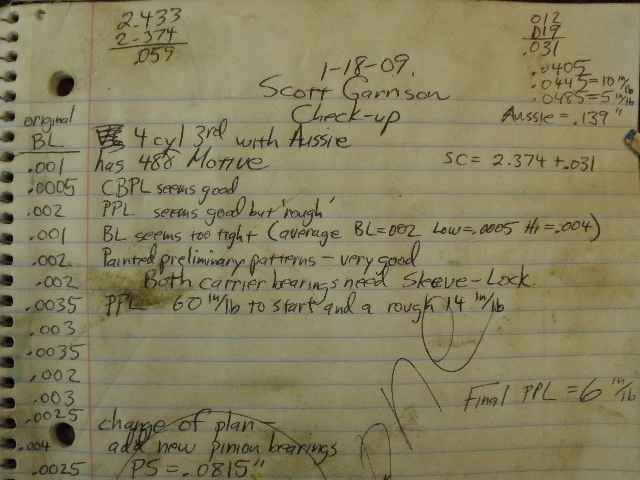 2.433
2.374
.059
012
019
.031
.0405
.0445=10 in/lb
.0485=5 in/lb
Aussie = .139"
1-18-09.
Scott Garrison
Check-up
original
BL
4 cyl 3rd with Aussie
.001 has 488 Motive
SC = 2.374 + .031
.0005 CBPL seems good
.002 PPL seems good but 'rough'
.001 BL seems too tight (average BL=.002 Low=.0005 Hi=.004)
.002 Painted preliminary patterns - very good
.002 Both carrier bearings need Sleeve-Lock.
.0035 PPL 60 in/lb to start and a rough 14 in/lb
.003
.0035
.002
.003
Final PPL = 6 in/lb
.0025 change of plan -
.004 add new pinion bearings
.0025 PS = .0815"